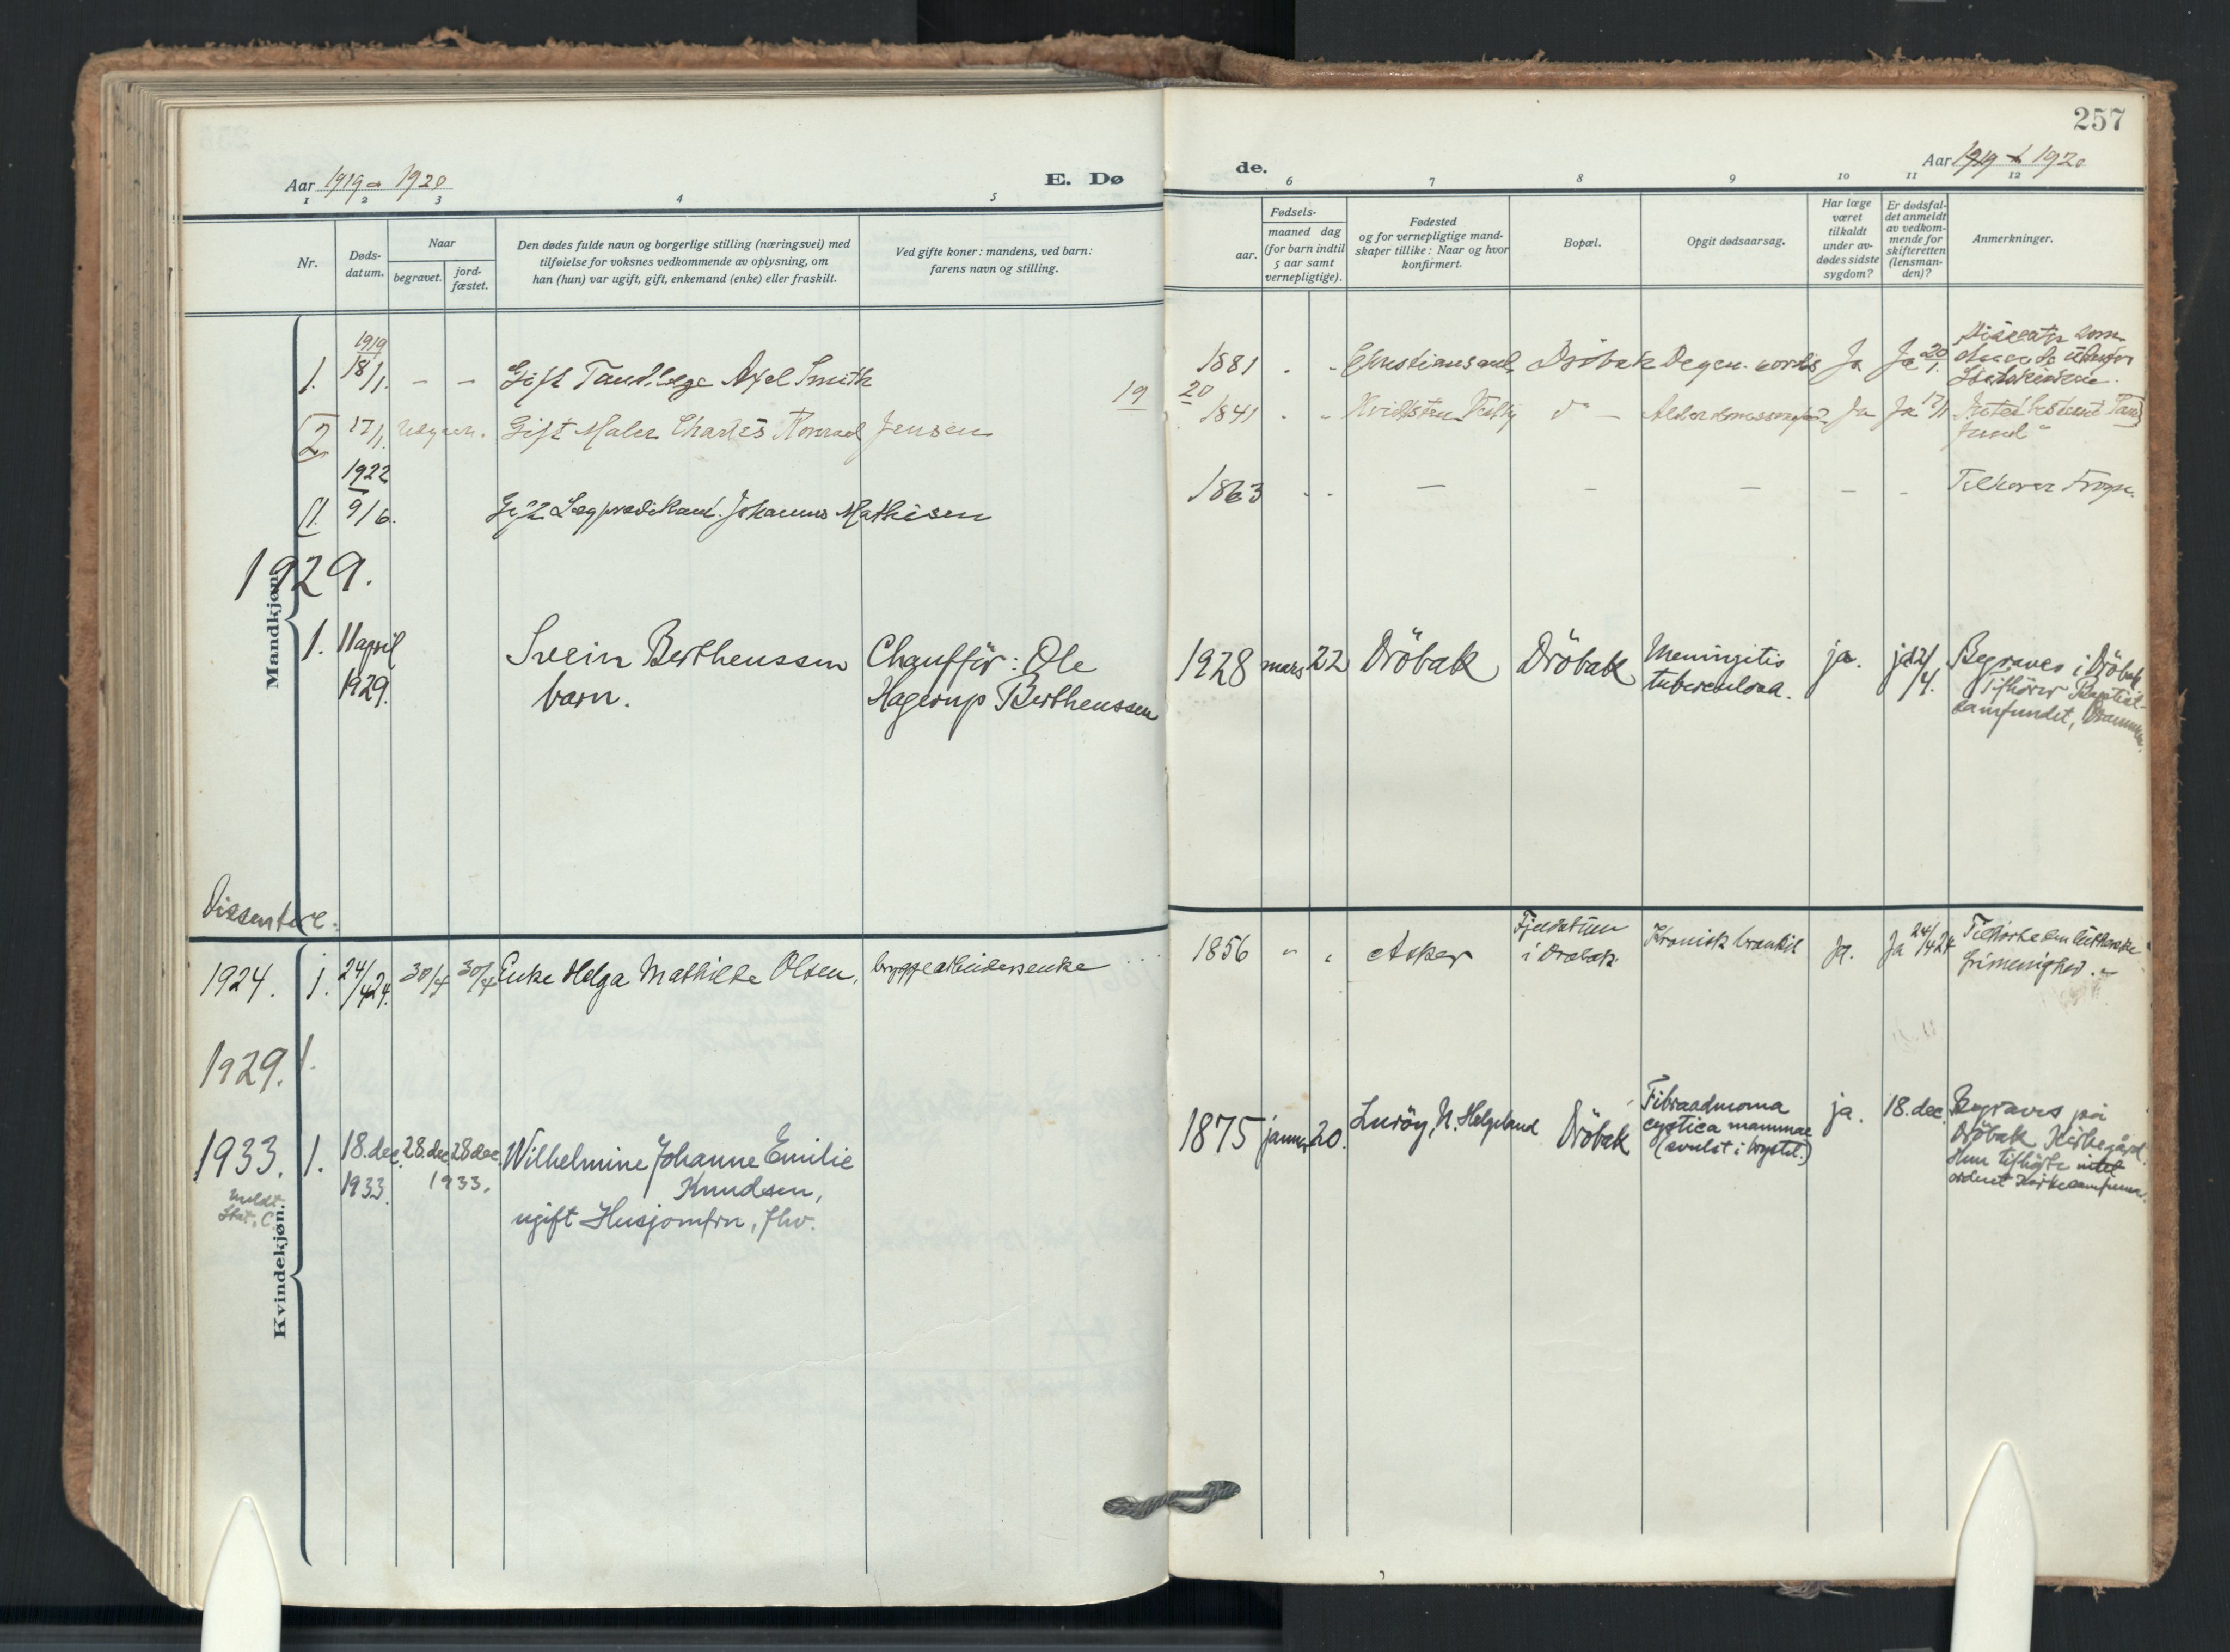 257
Aar 1919 - 1920
E. Dø
de.
Aar 1919 1920
1 2 3 4 5
6 7 8 9 10 11 12
Nr.
Døds-
datum.
Naar
begravet.
jord-
fæstet.
Den dødes fulde navn og borgerlige stilling (næringsvei) med
tilføielse for voksnes vedkommende av oplysning, om
han (hun) var ugift, gift, enkemand (enke) eller fraskilt.
Ved gifte koner: mandens, ved barn:
farens navn og stilling.
Fødsels-
aar.
maaned dag
(for barn indtil
5 aar samt
vernepligtige).
Fødested
og for vernepligtige mand-
skaper tillike: Naar og hvor
konfirmert.
Bopæl.
Opgit dødsaarsag.
Har læge
været
tilkaldt
under av-
dødes sidste
sygdom?
Er dødsfal-
det anmeldt
av vedkom-
mende for
skifteretten
(lensman-
den)?
Anmerkninger.
Mandkjøn.
1919
1. 18/1. - - Gift Tandlæge Axel Smith
1881 Christiansand Dröbak Degen. cordis Ja Ja 20/1.
19
20
2 17/1. Gift Maler Charles Konrad Jensen
1841 Ja Ja 17/1
1922
1. 9/6. Gift Lægprædikant Johannes Mathisen
1863 - - - - - Tilhører Frogn.
1929.
1. 11 april
1929.
Svein Berthenssen
barn.
Chaufför: Ole
Hagerup Berthenssen
1928 mars 22 Dröbak Dröbak
Meningitis
tuberculosa.
ja. ja 12/4.
Begraves i Dröbak
Tilhører Baptist-
samfundet, Drammen.
Dissentere.
Kvindekjøn.
1924. 1. 24/4 24. 30/4 30/4 Enke Helga Mathilde Olsen, bryggearbeidersenke
1856 " " Asker
i Drøbak
Kronisk bronkit Ja. Ja 24/4 24
frimenighed.
1929. 1.
1933. 1. 18. dec.
1933.
28. dec 28 dec.
1933.
Wilhelmine Johanne Emilie
Knudsen,
ugift Husjomfru, fhv.
1875 januar 20. Luröy, N. Helgeland Dröbak
Fibroadenoma
cystica mammae
(svulst i brystet.)
ja. 18. dec.
Begraves på
Dröbak Kirkegård.
Hun tilhörte intet
ordnet kirkesamfunn.
meldt
Stat. C.